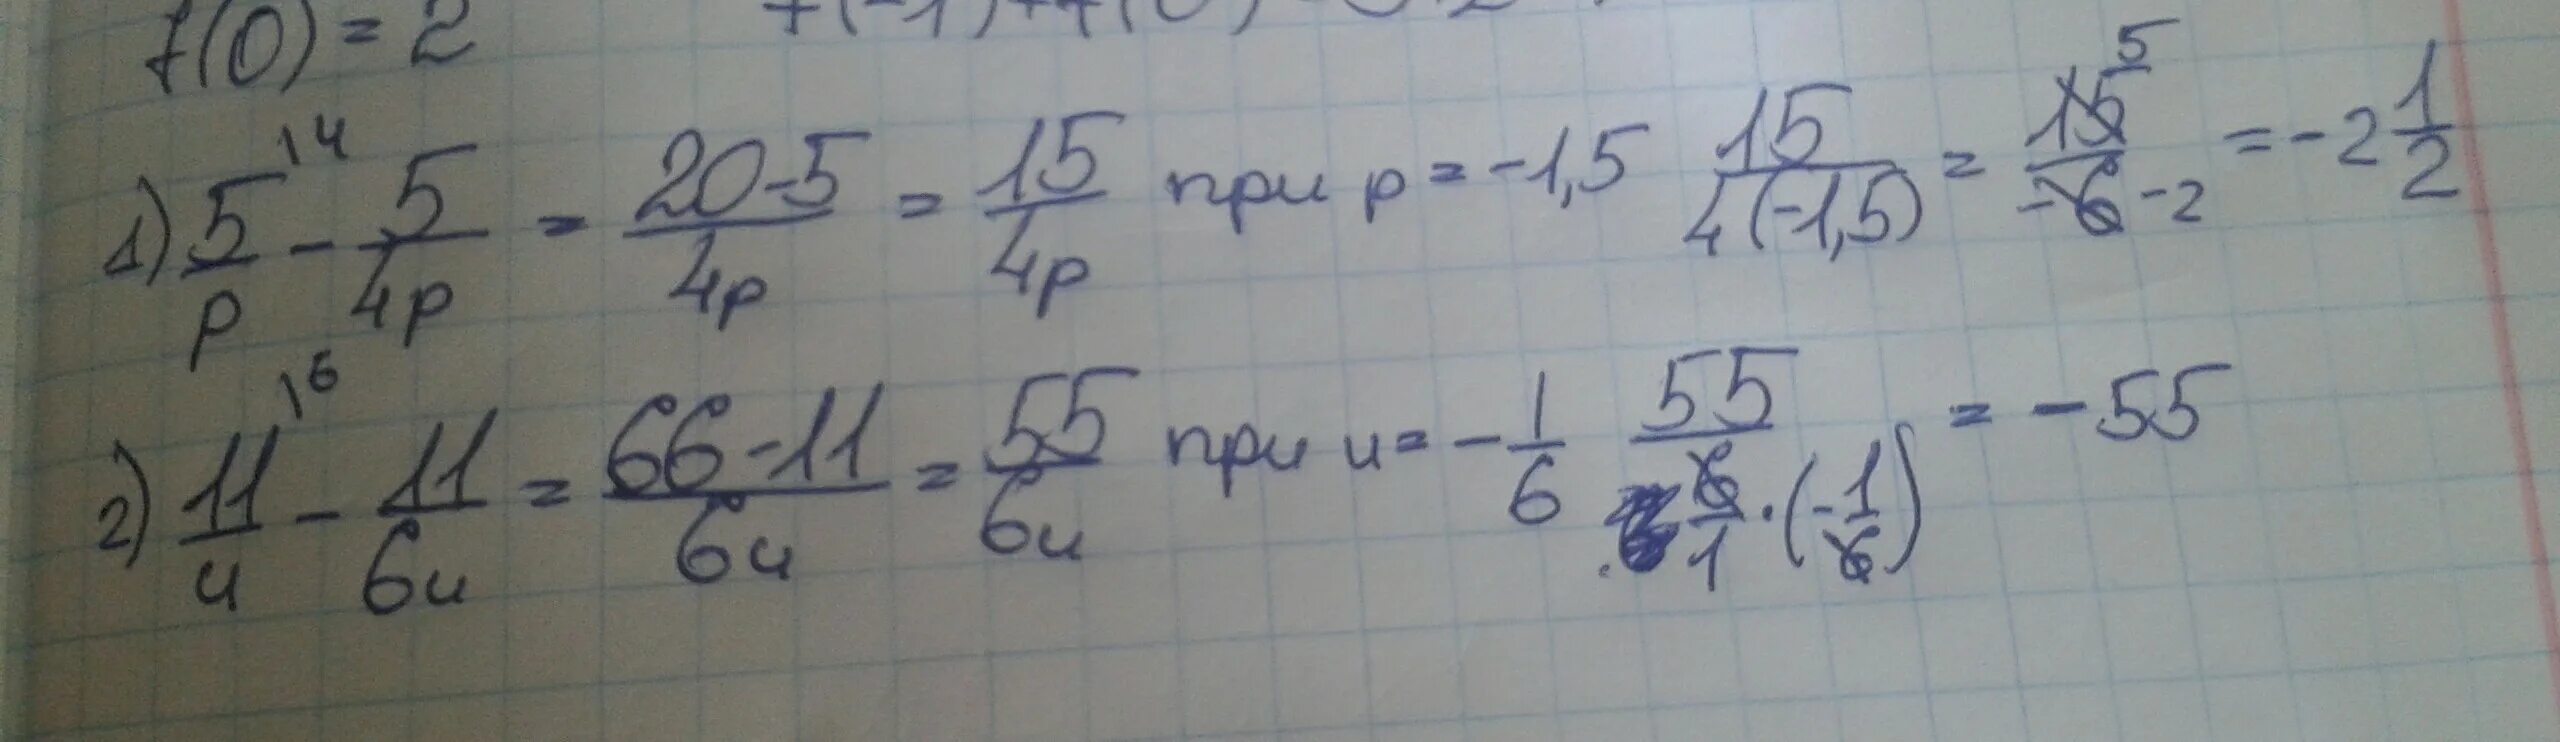 f(0) = 2
1) 5/p \4 - 5/4p = 20-5/4p = 15/4p при p = -1,5 15/4(-1,5) = 15 5/-6 -2 = -2 1/2
2) 11/u \6 - 11/6u = 66-11/6u = 55/6u при u = -1/6 55/6/1·(-1/6) = -55